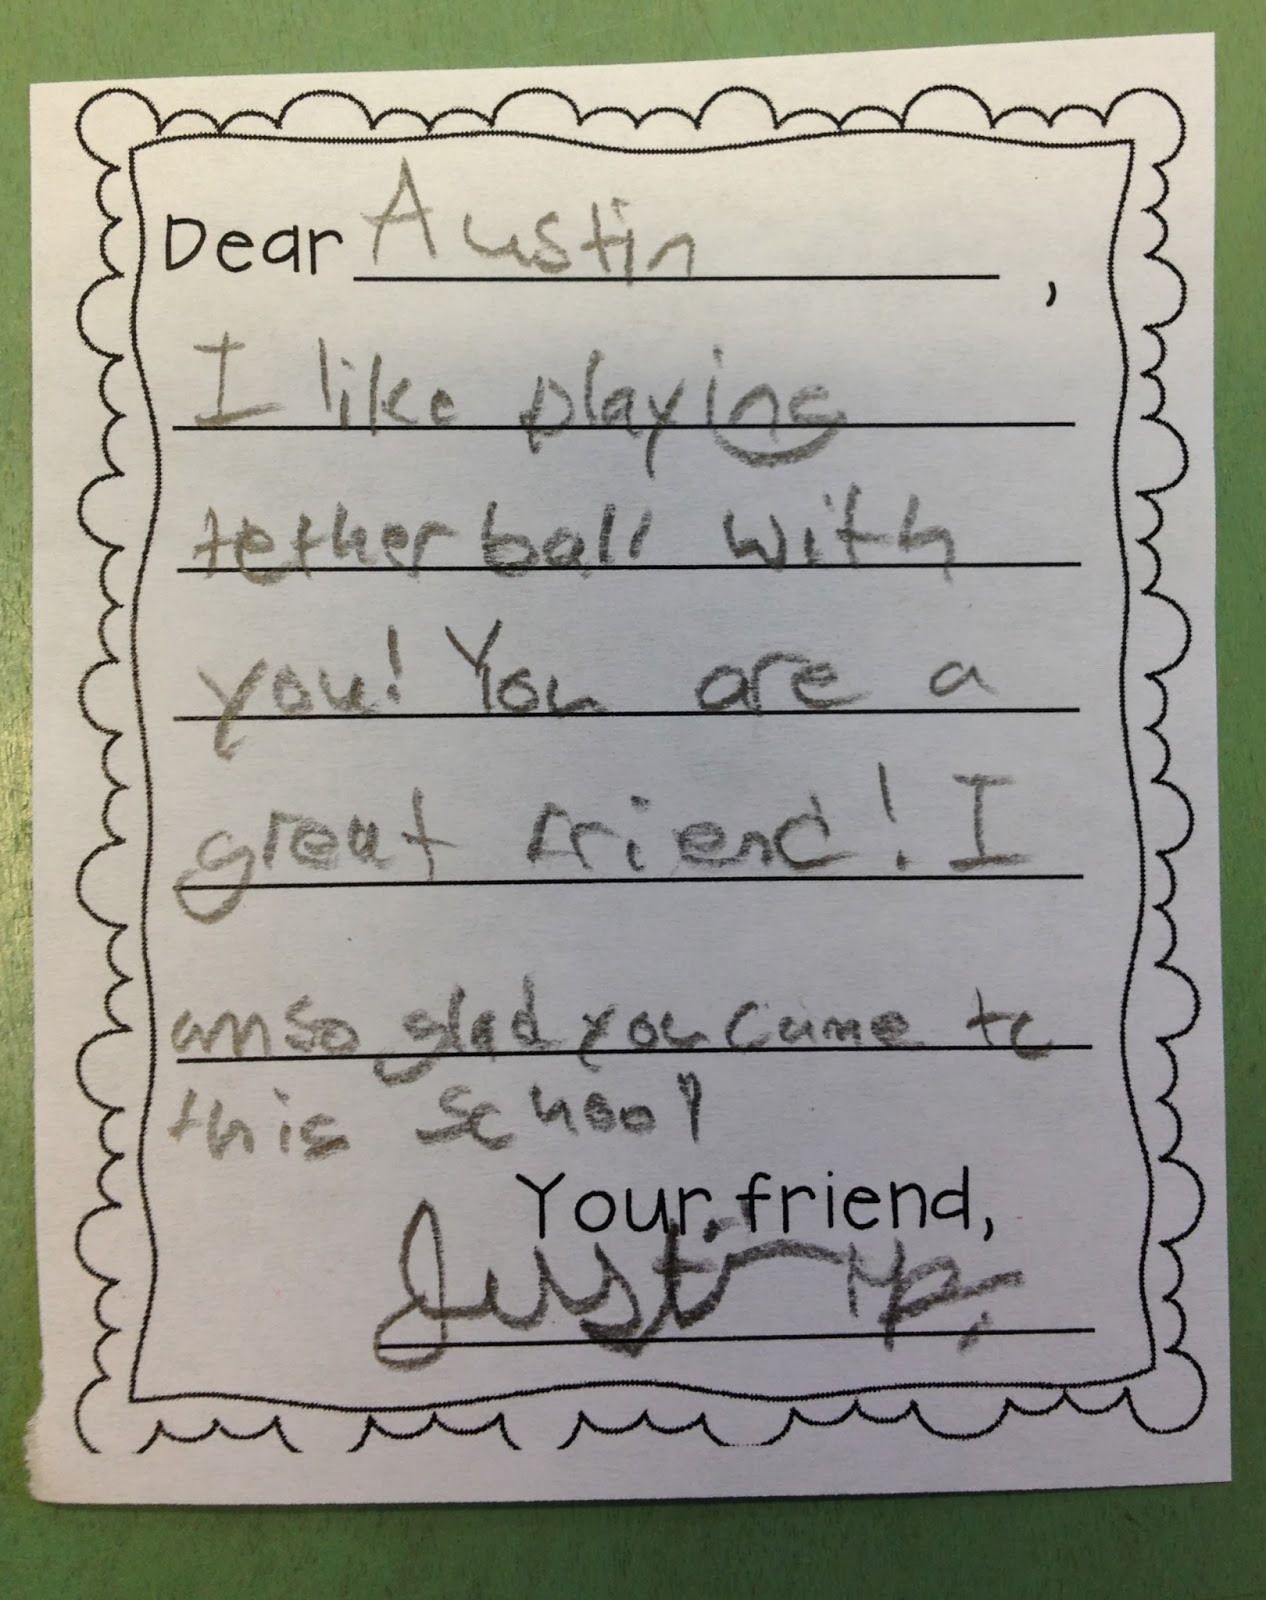 Dear Austin ,
I like playing
tether ball with
you! You are a
great friend! I
am so glad you came to
this school
Your friend,
Justin